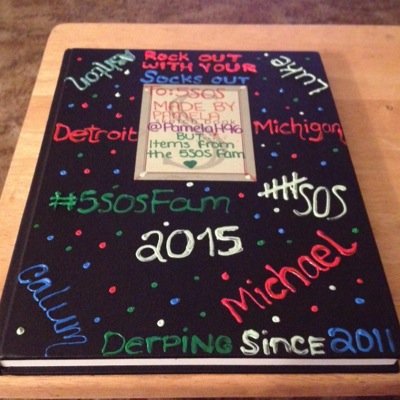 Ashton
ROCK OUT
WITH YOUR
SOCKS OUT
Luke
TO: 5SOS
MADE BY
PAMELA
BUT
Items from
the 5SOS Fam
Detroit
Michigan
#5SOSFam
SOS
2015
Michael
calum
DERPING SINCE 2011